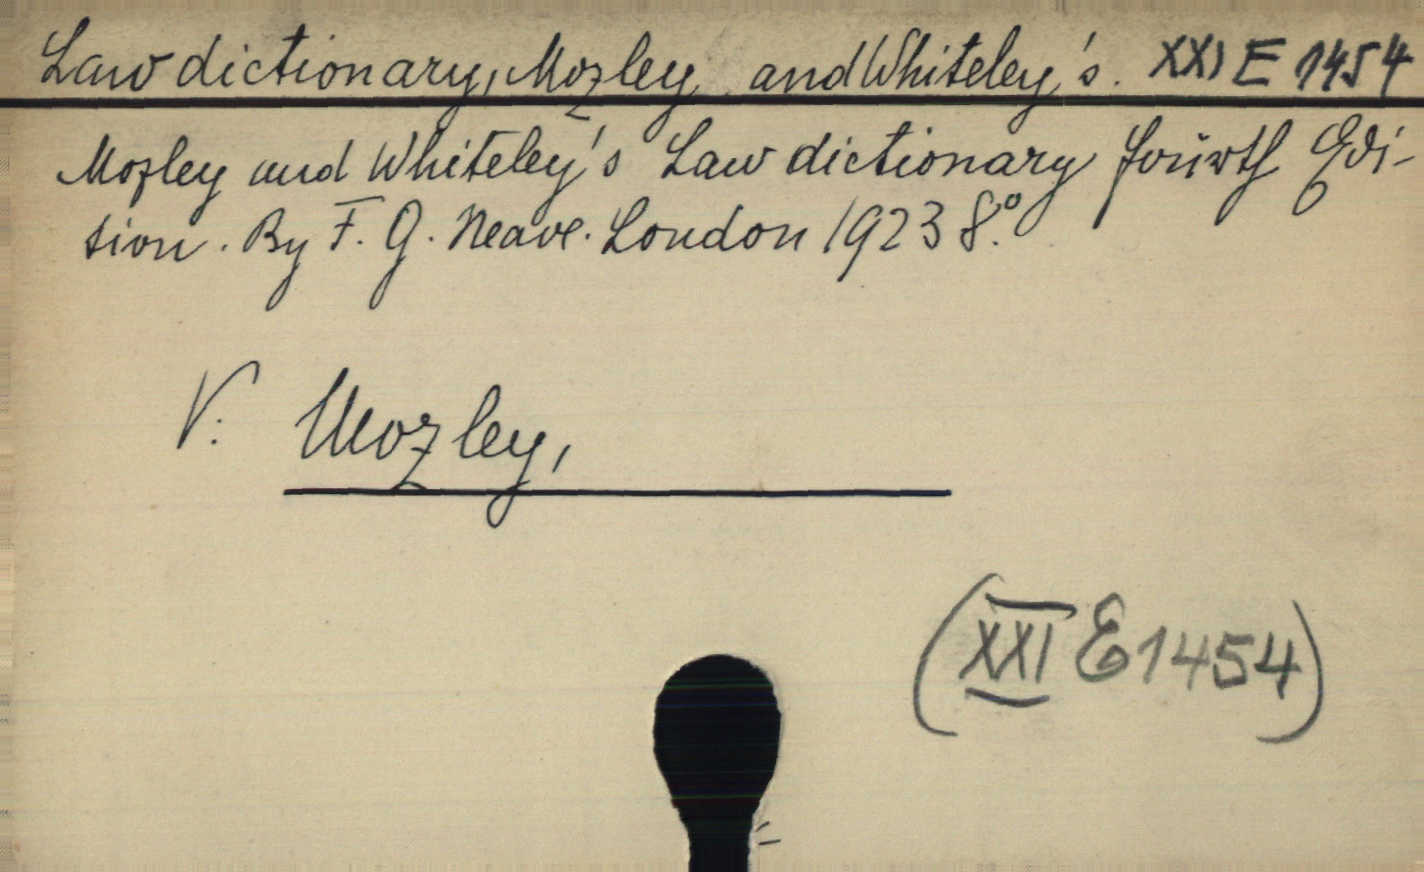 Law dictionary, Mozley and Whiteley's. XXI E 1454
Mozley and Whiteley's Law dictionary fourth Edi-
tion. By F. G. Neave. London 1923 8.º
V. Mozley,
(XXI E 1454)